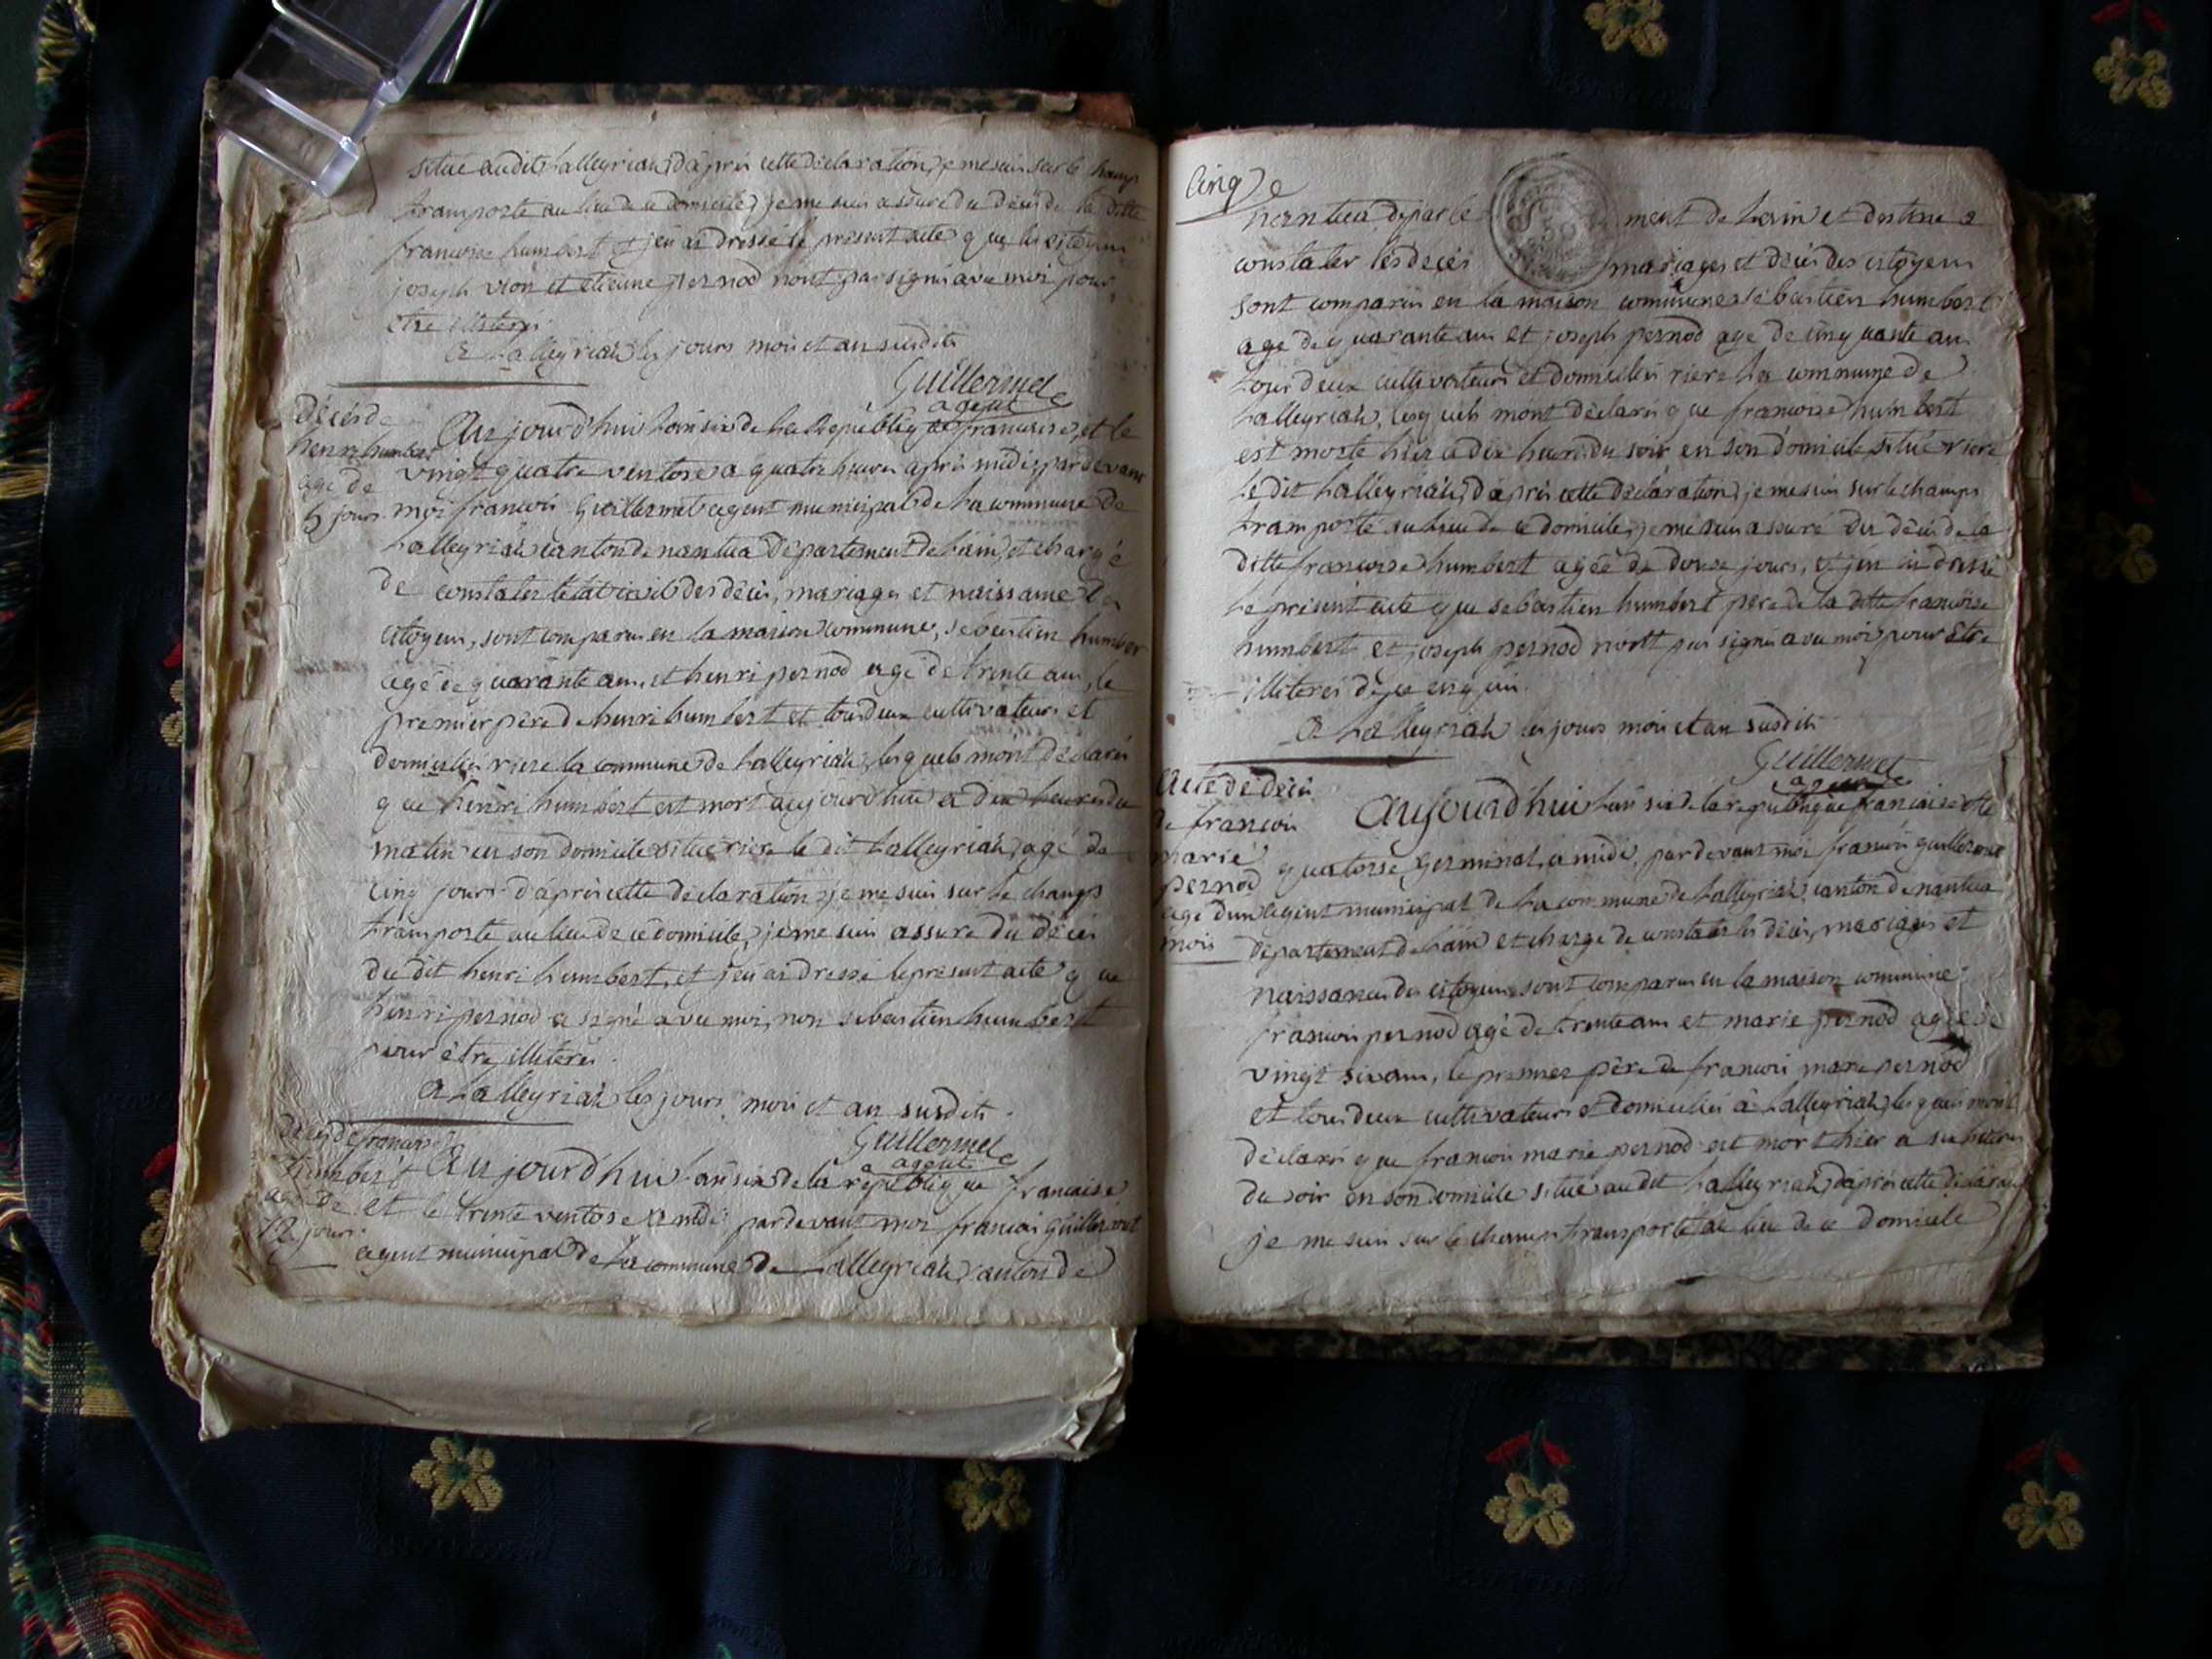 situé audit Lalleyriat, d'après cette déclaration, je me suis sur le champs
transporté au lieu de ce domicile, je me suis assuré du décès de la ditte
francoise humbert et j'en ai dressé le present acte que les citoyens
joseph vion et etienne pernod n'ont pas signés avec moi pour
être illiterés
a Lalleyriat les jours mois et an susdits
Guillermet
agent
décès de
henri humbert
agé de
5 jours
Aujourd'hui l'an six de la République francaise, et le
vingt quatre ventose a quatre heures après midi, pardevant
moi francois Guillermet agent municipal de la commune de
Lalleyriat canton de nantua département de Lain, et chargé
de constater l'état civil des décès, mariages et naissance des
citoyens, sont comparus en la maison commune, sebastien humbert
agé de quarante ans, et henri pernod agé de trente ans, le
premier père de henri humbert et tous deux cultivateurs et
domiciliés riere la commune de Lalleyriat, lesquels m'ont déclarés
que henri humbert est mort aujourd'hui a dix heures du
matin en son domicile situé riere le dit Lalleyriat, agé de
cinq jours. d'après cette declaration, je me suis sur le champs
transporté au lieu de ce domicile, je me suis assuré du décès
du dit henri humbert, et j'en ai dressé le present acte que
henri pernod a signé avec moi, non sebastien humbert
pour être illiterés.
a Lalleyriat les jours mois et an susdits.
Guillermet
agent
décès de francoise
humbert
agée de
12 jours
Aujourd'hui l'an six de la république francaise
et le trente ventose a midi pardevant moi francois Guillermet
agent municipal de la commune de Lalleyriat canton de
Cinq e
nantua départe ment de Lain et destiné a
constater les décès mariages et décès des citoyens
sont comparus en la maison commune sébastien humbert
agé de quarante ans et joseph pernod agé de cinquante ans
tous deux cultivateurs et domiciliés riere la commune de
Lalleyriat, lesquels m'ont déclarés que francoise humbert
est morte hier a dix heures du soir en son domicile situé riere
le dit Lalleyriat, d'après cette déclaration, je me suis sur le champs
transporté au lieu de ce domicile, je me suis assuré du décès de la
ditte francoise humbert agéé de douze jours, et j'en ai dressé
le présent acte que sebastien humbert pere de la ditte francoise
humbert et joseph pernod n'ont pas signés avec moi pour être
illiterés de ce enquis.
a Lalleyriat les jours mois et an susdits
Guillermet
agent
Acte de décès
de francois
marie
pernod
agé d'un
mois
Aujourd'hui l'an six de la république francaise et le
quatorse germinal, a midi, pardevant moi francois guillermet
agent municipal de la commune de Lalleyriat, canton de nantua
département de Lain et chargé de constater les décès, mariages et
naissances des citoyens sont comparus en la maison commune
francois pernod agé de trente ans et marie pernod agée de
vingt six ans, le premier père de francois marie pernod
et tous deux cultivateurs et domiciliés à Lalleyriat, lesquels m'ont
déclarés que francois marie pernod est mort hier a six heures
du soir en son domicile situé au dit Lalleyriat, d'après cette déclaration
je me suis sur le champs transporté au lieu de ce domicile